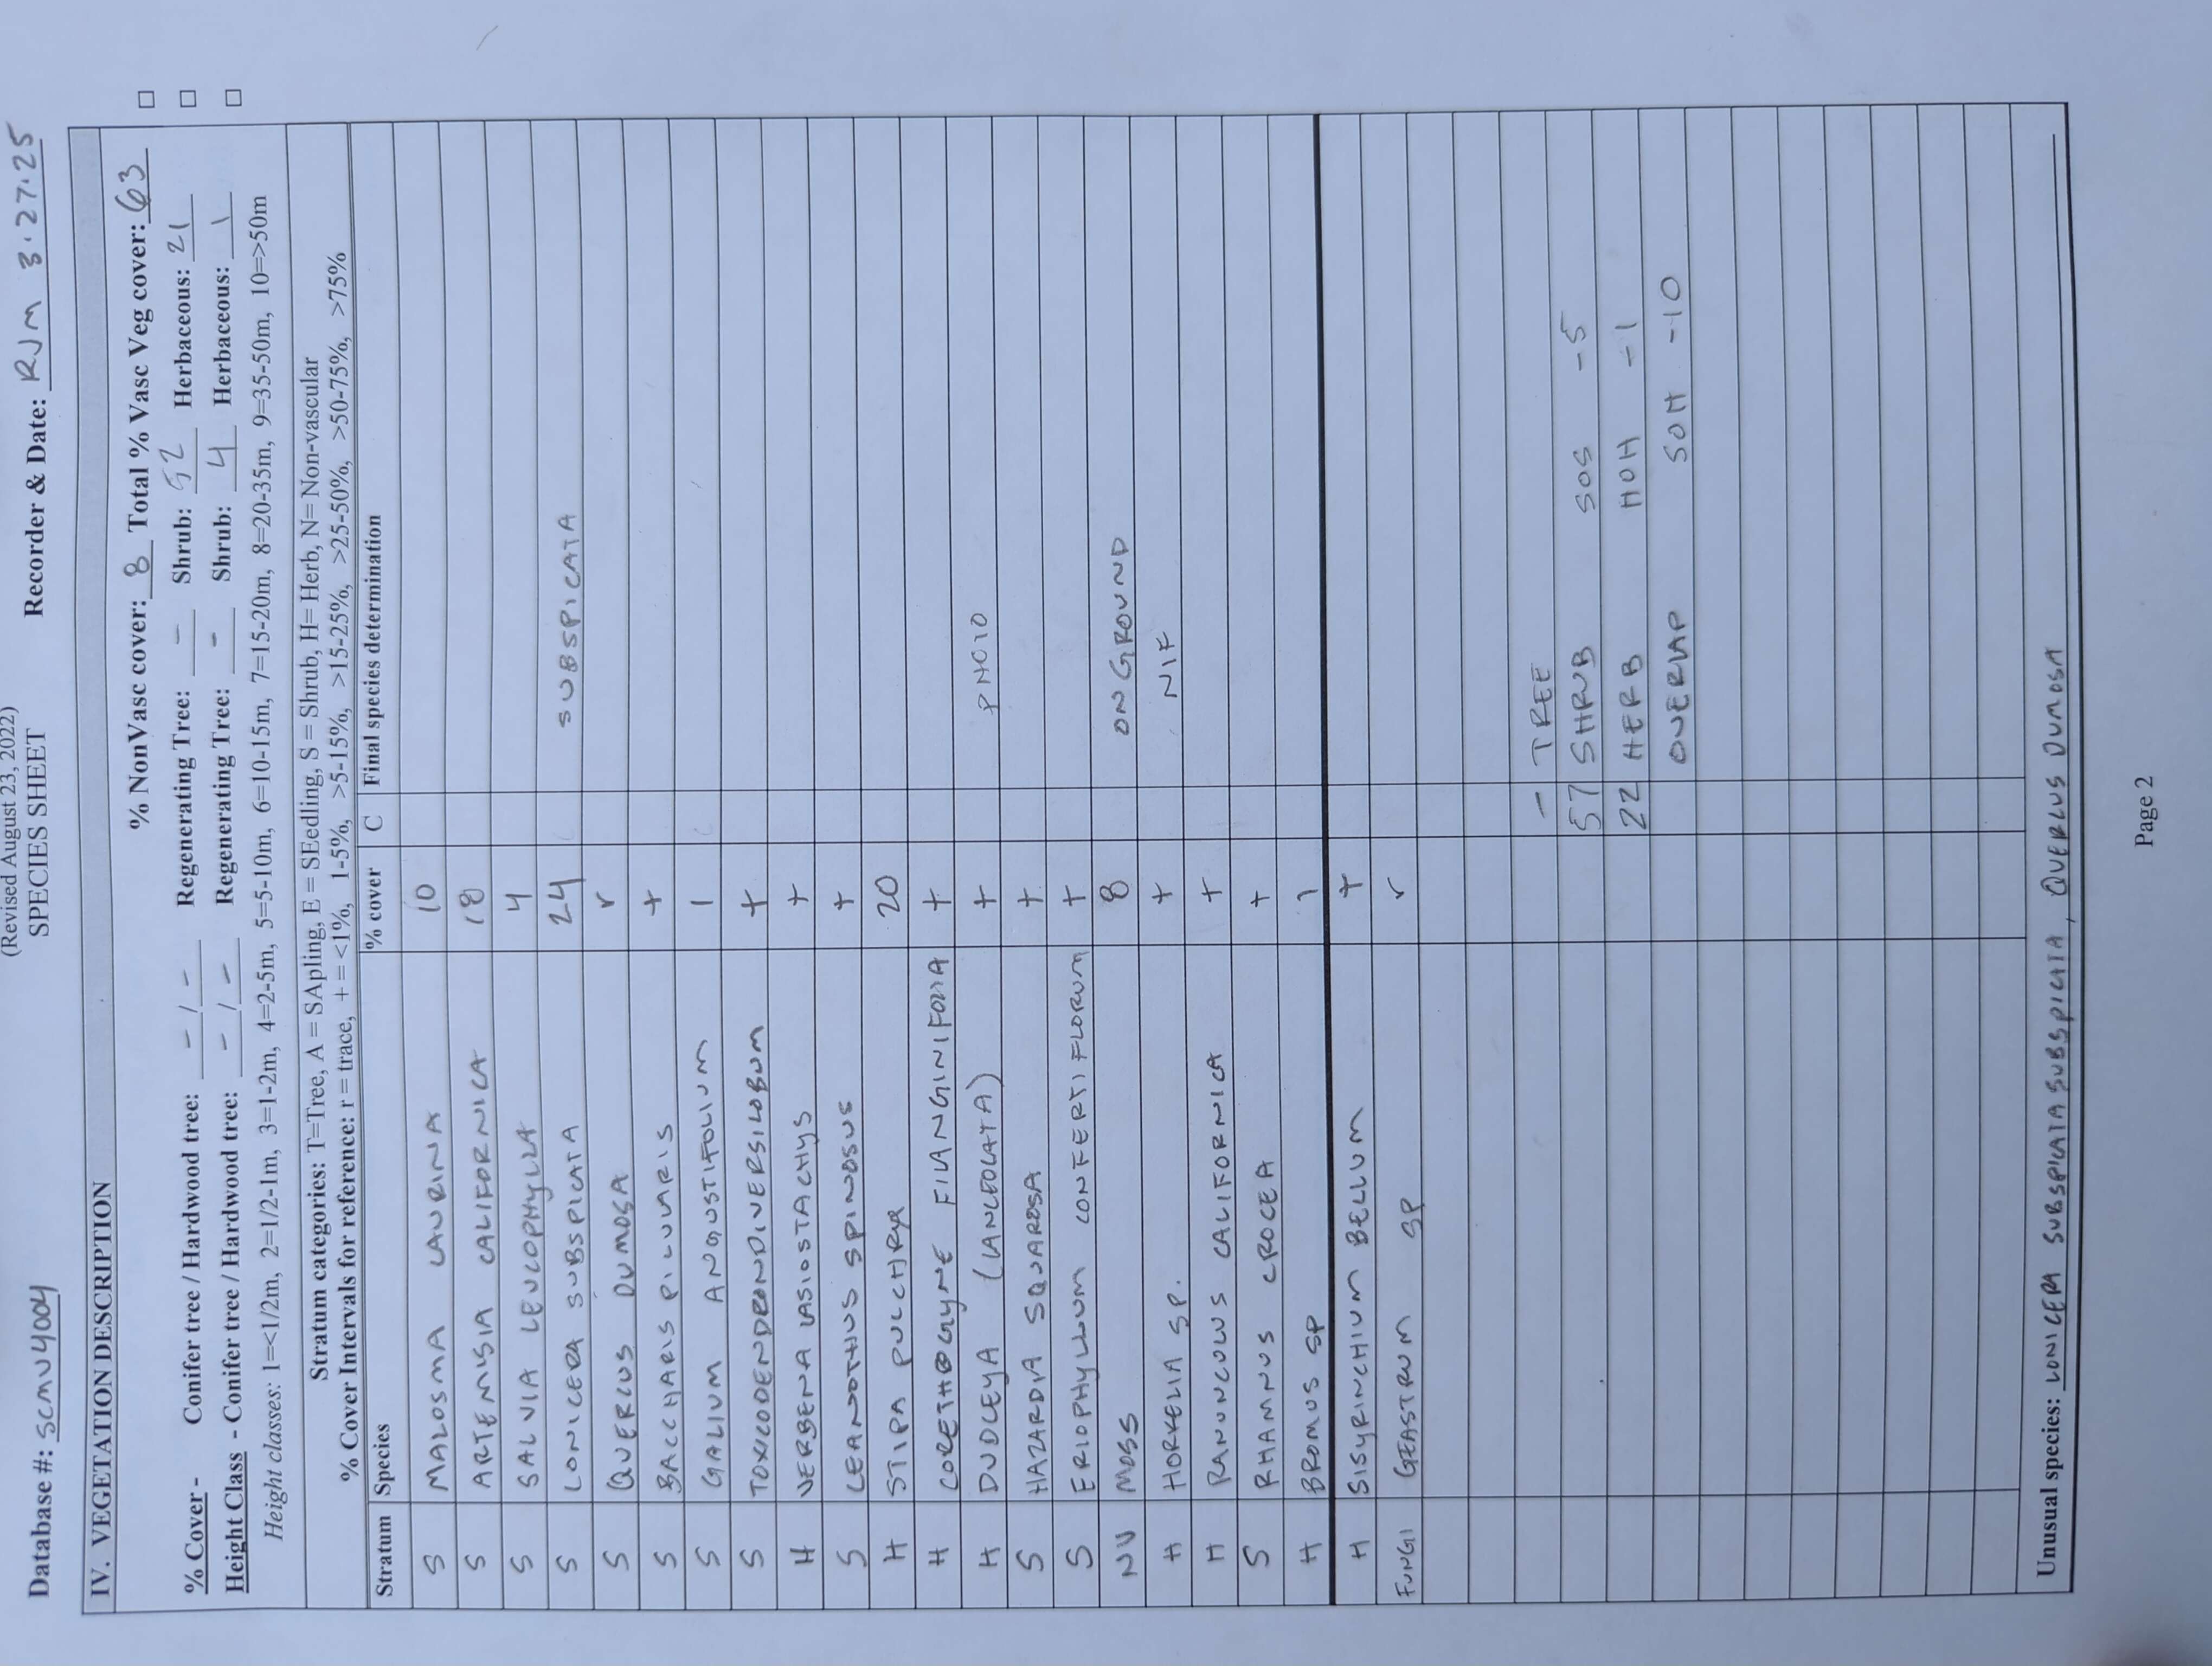 (Revised August 23, 2022)
SPECIES SHEET
Database #: SCMU4004 Recorder & Date: RJM 3.27.25
IV. VEGETATION DESCRIPTION
% NonVasc cover: 8 Total % Vasc Veg cover: 63 □
% Cover - Conifer tree / Hardwood tree: - / - Regenerating Tree: - Shrub: 52 Herbaceous: 21 □
Height Class - Conifer tree / Hardwood tree: - / - Regenerating Tree: - Shrub: 4 Herbaceous: 1 □
Height classes: 1=<1/2m, 2=1/2-1m, 3=1-2m, 4=2-5m, 5=5-10m, 6=10-15m, 7=15-20m, 8=20-35m, 9=35-50m, 10=>50m
Stratum categories: T=Tree, A = SApling, E = SEedling, S = Shrub, H= Herb, N= Non-vascular
% Cover Intervals for reference: r = trace, + = <1%, 1-5%, >5-15%, >15-25%, >25-50%, >50-75%, >75%
Stratum Species % cover C Final species determination
S MALOSMA LAURINA 10
S ARTEMISIA CALIFORNICA 18
S SALVIA LEUCOPHYLLA 4
S LONICERA SUBSPICATA 24 SUBSPICATA
S QUERCUS DUMOSA r
S BACCHARIS PILULARIS +
S GALIUM ANGUSTIFOLIUM 1
S TOXICODENDRON DIVERSILOBUM +
H VERBENA LASIOSTACHYS +
S CEANOTHUS SPINOSUS +
H STIPA PULCHRA 20
H CORETHROGYNE FILANGINIFOLIA +
H DUDLEYA (LANCEOLATA) + PHOTO
S HAZARDIA SQUAROSA +
S ERIOPHYLLUM CONFERTIFLORUM +
NV MOSS 8 ON GROUND
H HORKELIA SP. + NIF
H RANUNCULUS CALIFORNICA +
S RHAMNUS CROCEA +
H BROMUS SP 1
H SISYRINCHIUM BELLUM +
FUNGI GEASTRUM SP r
- TREE
57 SHRUB SOS -5
22 HERB HOH -1
OVERLAP SOH -10
Unusual species: LONICERA SUBSPICATA SUBSPICATA, QUERCUS DUMOSA
Page 2